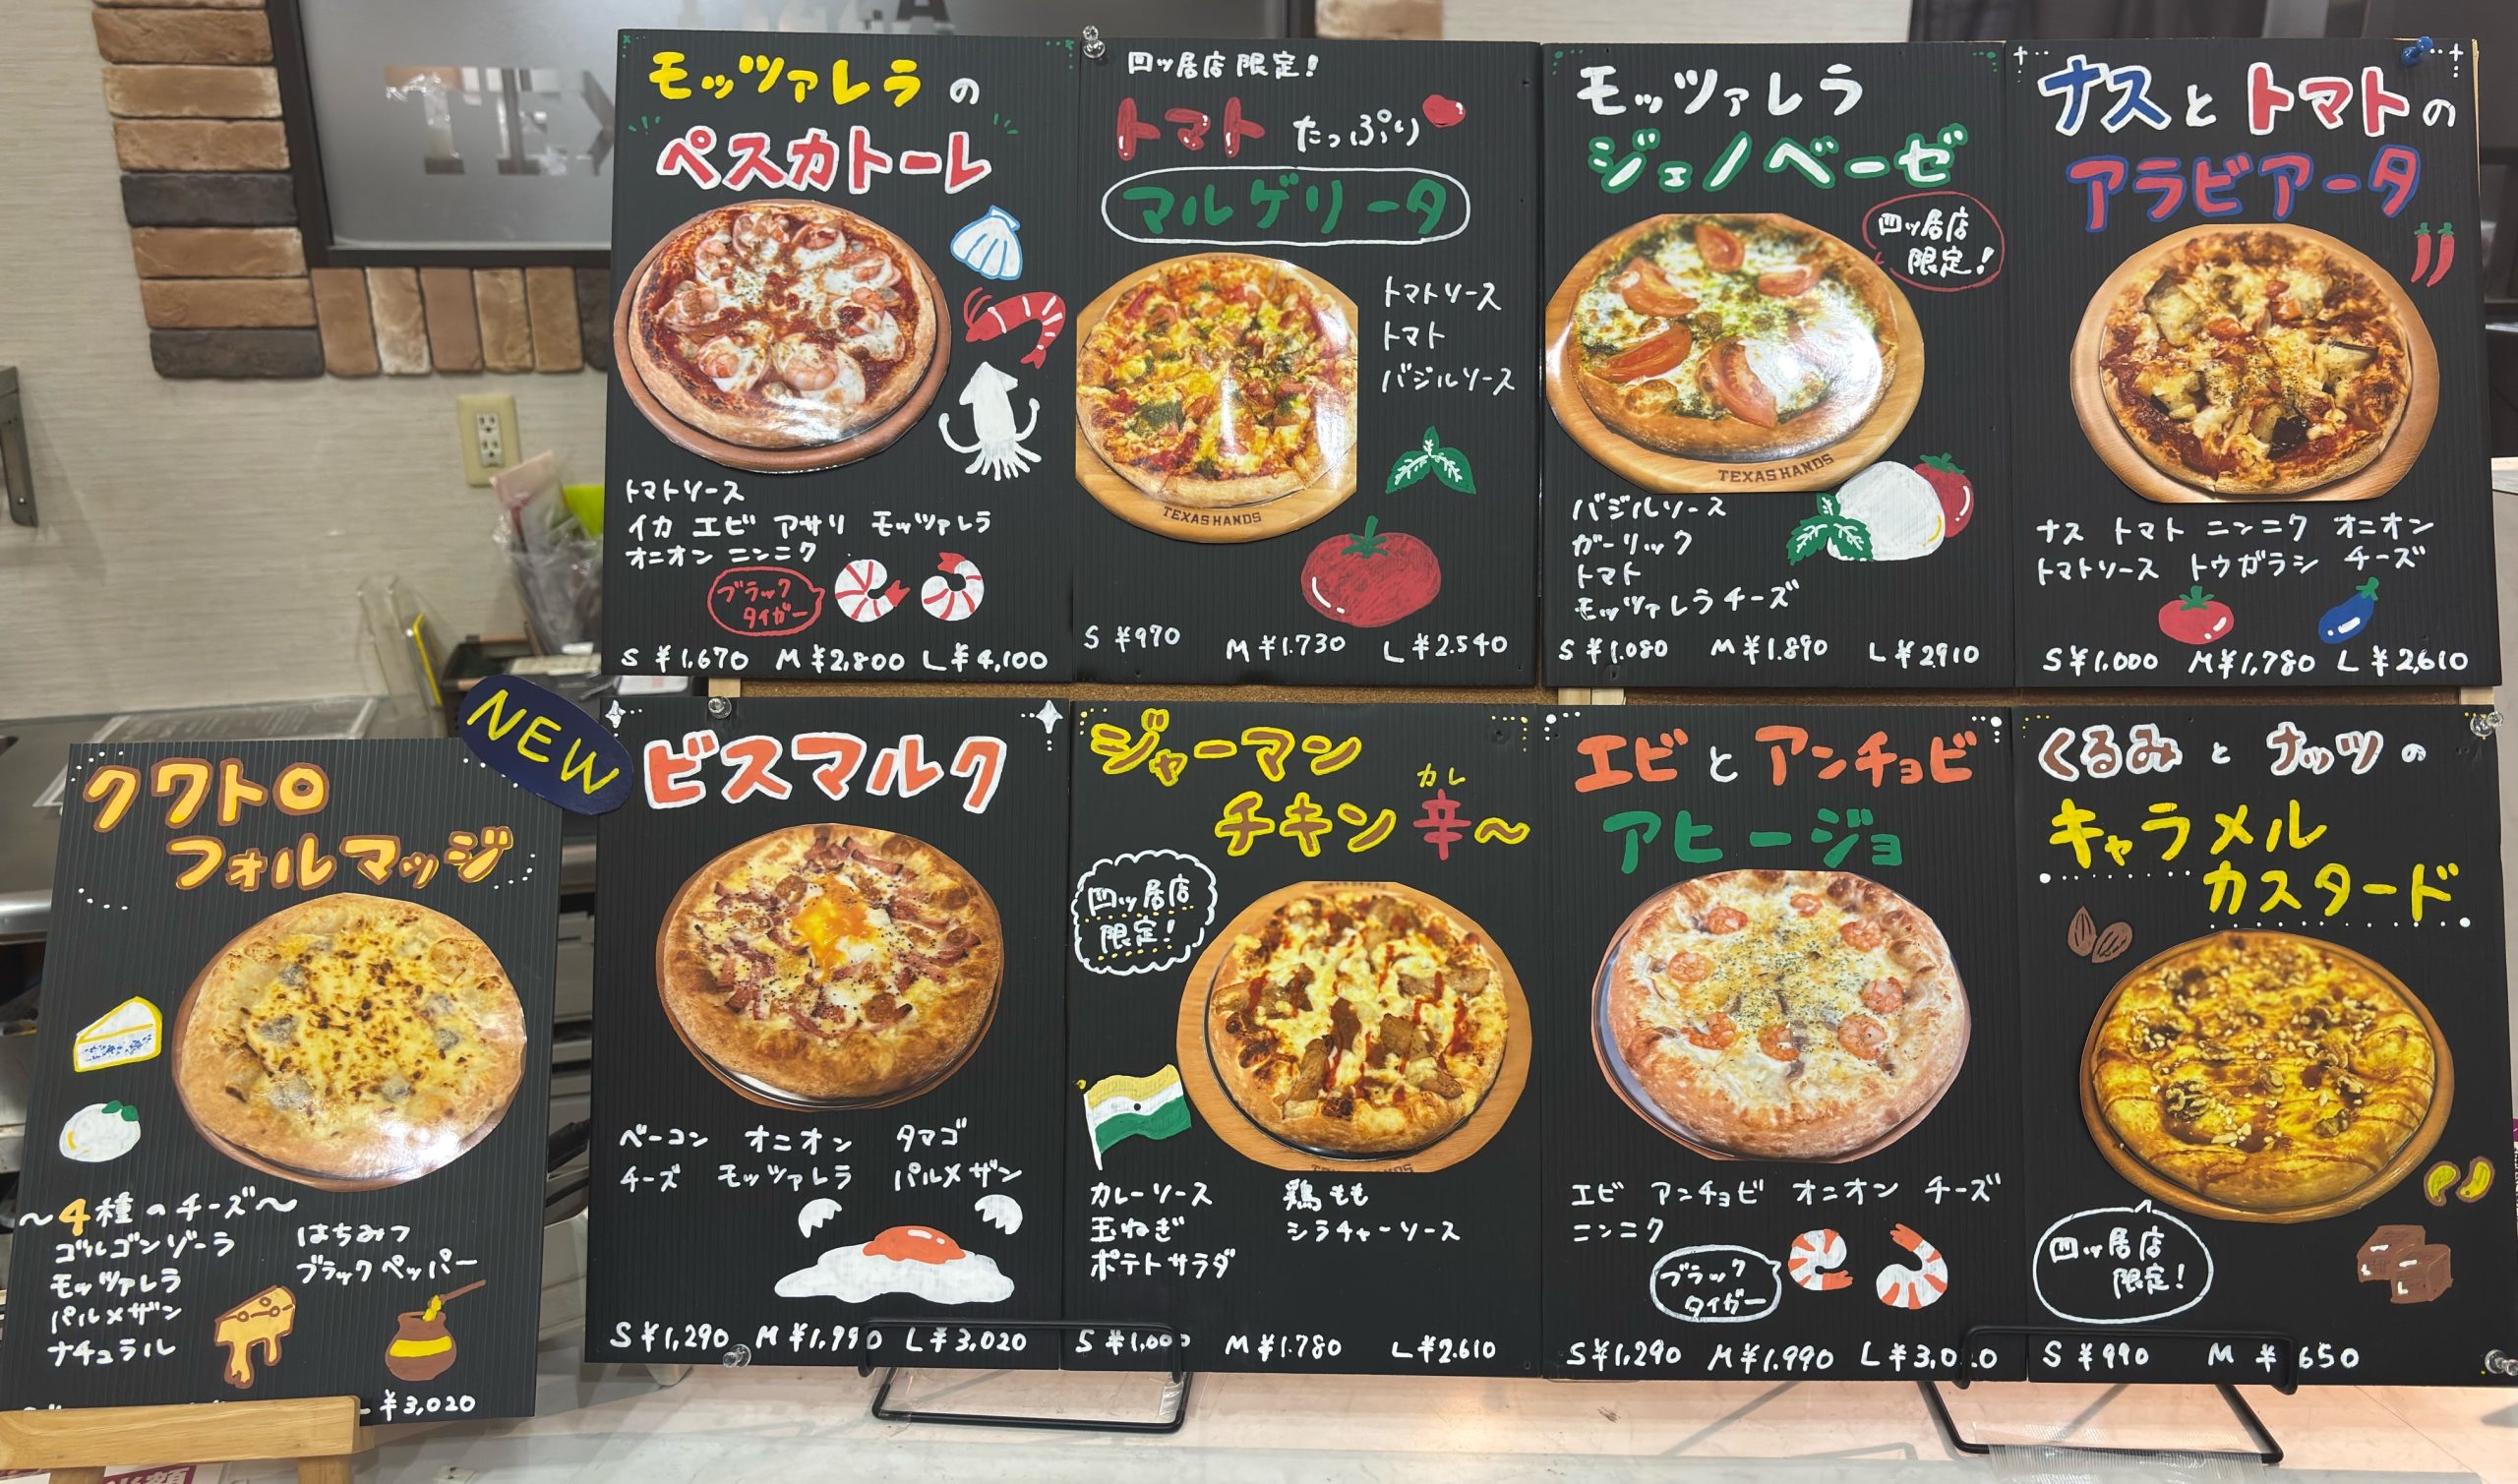 TEX
モッツァレラの
ペスカトーレ
トマトソース
イカ エビ アサリ モッツァレラ
オニオン ニンニク
ブラック
タイガー
S ¥1,670 M ¥2,800 L ¥4,100
四ツ居店 限定!
トマト たっぷり
マルゲリータ
トマトソース
トマト
バジルソース
TEXAS HANDS
S ¥970 M ¥1.730 L ¥2.540
モッツァレラ
ジェノベーゼ
四ツ居店
限定!
TEXAS HANDS
バジルソース
ガーリック
トマト
モッツァレラチーズ
S ¥1.080 M ¥1.890 L ¥2910
ナスとトマトの
アラビアータ
ナス トマト ニンニク オニオン
トマトソース トウガラシ チーズ
S ¥1.000 M ¥1,780 L ¥2,610
NEW
クワトロ
フォルマッジ
〜4種のチーズ〜
ゴルゴンゾーラ
モッツァレラ
パルメザン
ナチュラル
はちみつ
ブラックペッパー
¥3,020
ビスマルク
ベーコン オニオン タマゴ
チーズ モッツァレラ パルメザン
S ¥1,290 M ¥1,990 L ¥3,020
ジャーマン
カレ
チキン 辛〜
四ツ居店
限定!
カレーソース
玉ねぎ
ポテトサラダ
鶏もも
シラチャーソース
S ¥1,000 M ¥1.780 L ¥2.610
エビとアンチョビ
アヒージョ
エビ アンチョビ オニオン チーズ
ニンニク
ブラック
タイガー
S ¥1,290 M ¥1.990
くるみとナッツの
キャラメル
カスタード
四ツ居店
限定!
S ¥990 M ¥